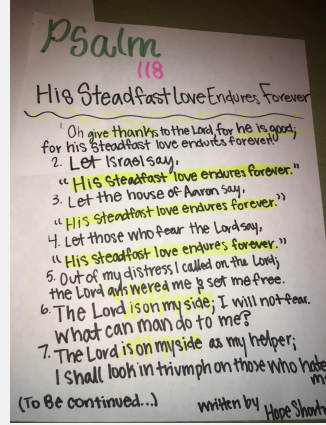 Psalm
118
His Steadfast Love Endures Forever
1. Oh give thanks to the Lord for he is good;
for his steadfast love endures forever!
2. Let Israel say,
"His Steadfast love endures forever."
3. Let the house of Aaron say,
"His steadfast love endures forever."
4. Let those who fear the Lord say,
"His steadfast love endures forever."
5. Out of my distress I called on the Lord;
the Lord answered me & set me free.
6. The Lord is on my side; I will not fear.
What can man do to me?
7. The Lord is on my side as my helper;
I shall look in triumph on those who hate
(To Be continued...)
written by Hope